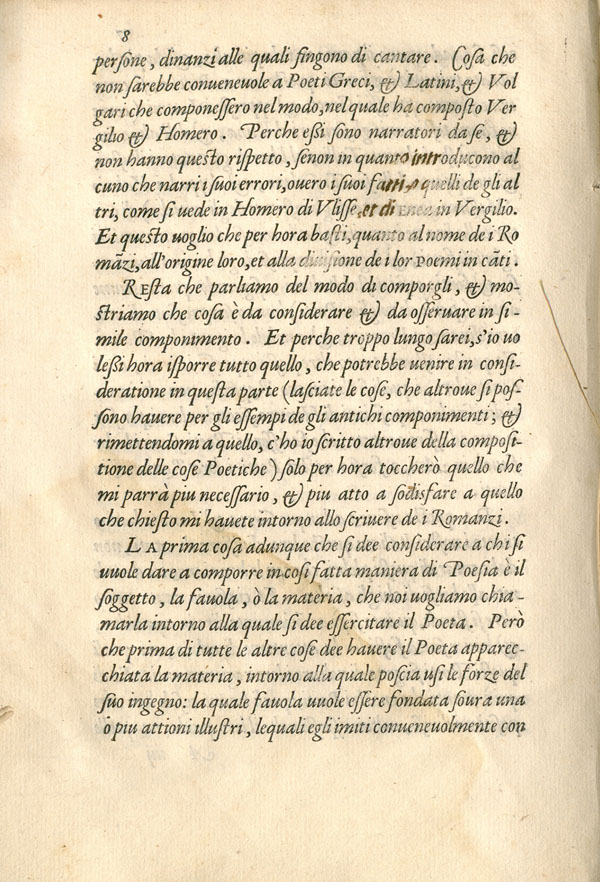 8
perſone, dinanzi alle quali fingono di cantare. Coſa che
non ſarebbe conueneuole a Poeti Greci, & Latini, & Vol
gari che componeſſero nel modo, nel quale ha compoſto Ver
gilio & Homero. Perche eßi ſono narratori da ſe, &
non hanno queſto riſpetto, ſenon in quanto introducono al
cuno che narri i ſuoi errori, ouero i ſuoi fatti, o quelli de gli al
tri, come ſi uede in Homero di Vliſſe, et di Enea in Vergilio.
Et queſto uoglio che per hora baſti, quanto al nome de i Ro
mãzi, all'origine loro, et alla diuiſione de i lor poemi in cãti.
REſta che parliamo del modo di comporgli, & mo-
ſtriamo che coſa è da conſiderare & da oſſeruare in ſi-
mile componimento. Et perche troppo lungo ſarei, s'io uo
leßi hora iſporre tutto quello, che potrebbe uenire in conſi-
deratione in queſta parte (laſciate le coſe, che altroue ſi poſ-
ſono hauere per gli eſſempi de gli antichi componimenti; &
rimettendomi a quello, c'ho io ſcritto altroue della compoſi-
tione delle coſe Poetiche) ſolo per hora toccherò quello che
mi parrà piu neceſſario, & piu atto a ſodisfare a quello
che chieſto mi hauete intorno allo ſcriuere de i Romanzi.
LA prima coſa adunque che ſi dee conſiderare a chi ſi
uuole dare a comporre in coſi fatta maniera di Poeſia è il
ſoggetto, la fauola, ò la materia, che noi uogliamo chia-
marla intorno alla quale ſi dee eſſercitare il Poeta. Però
che prima di tutte le altre coſe dee hauere il Poeta apparec-
chiata la materia, intorno alla quale poſcia uſi le forze del
ſuo ingegno: la quale fauola uuole eſſere fondata ſoura una
ò piu attioni illuſtri, lequali egli imiti conueneuolmente con